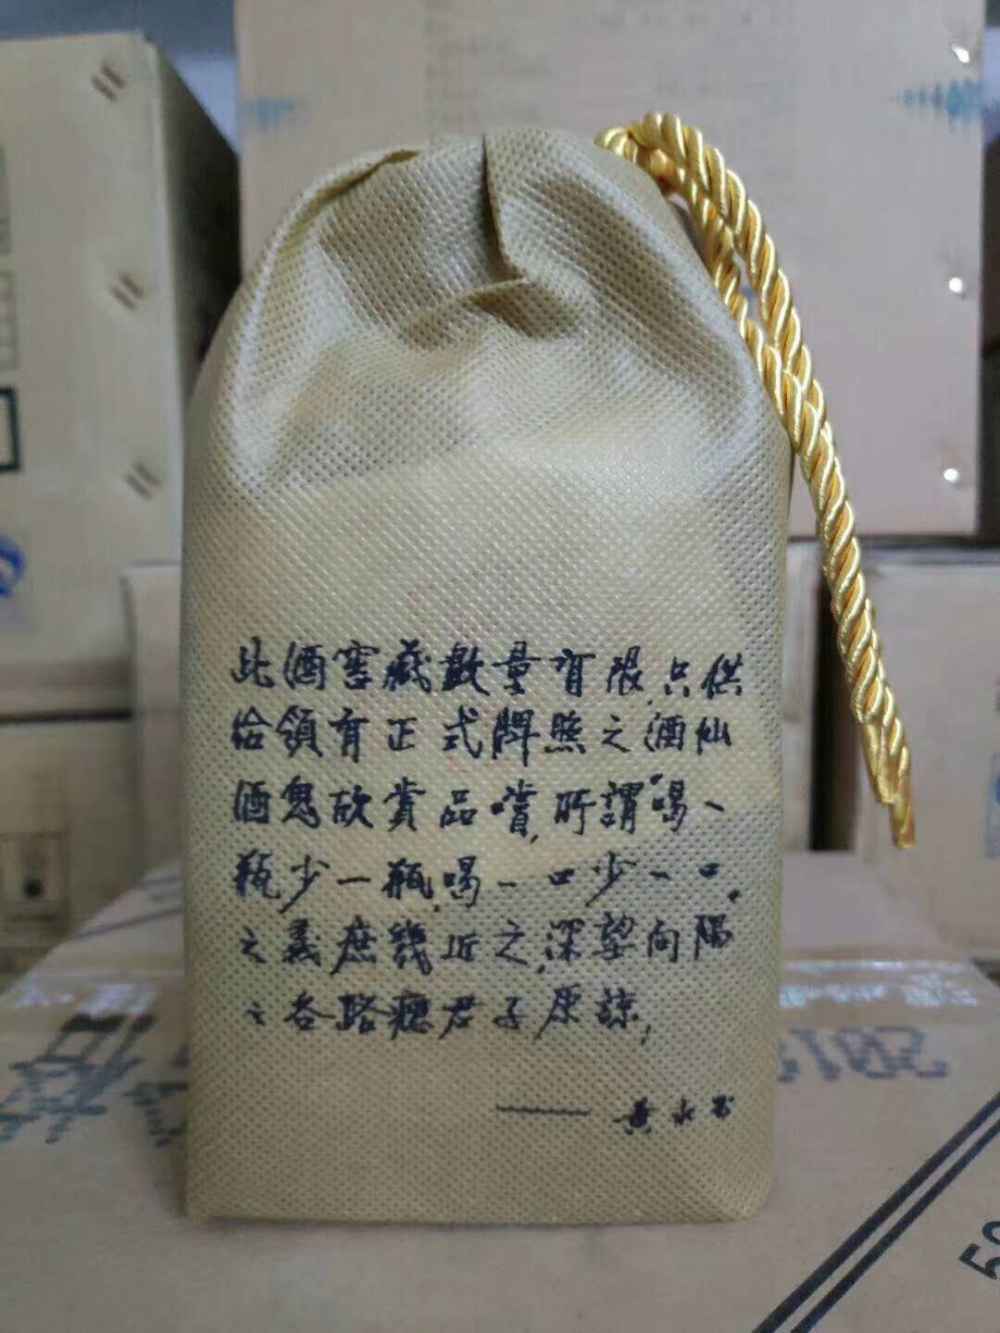 此酒窖藏數量有限,只供
给領有正式牌照之酒仙
酒鬼欣賞品嚐,所謂喝一
瓶少一瓶,喝一口少一口。
之義庶幾近之,深望向隅
之各路癮君子原諒,
2013
50